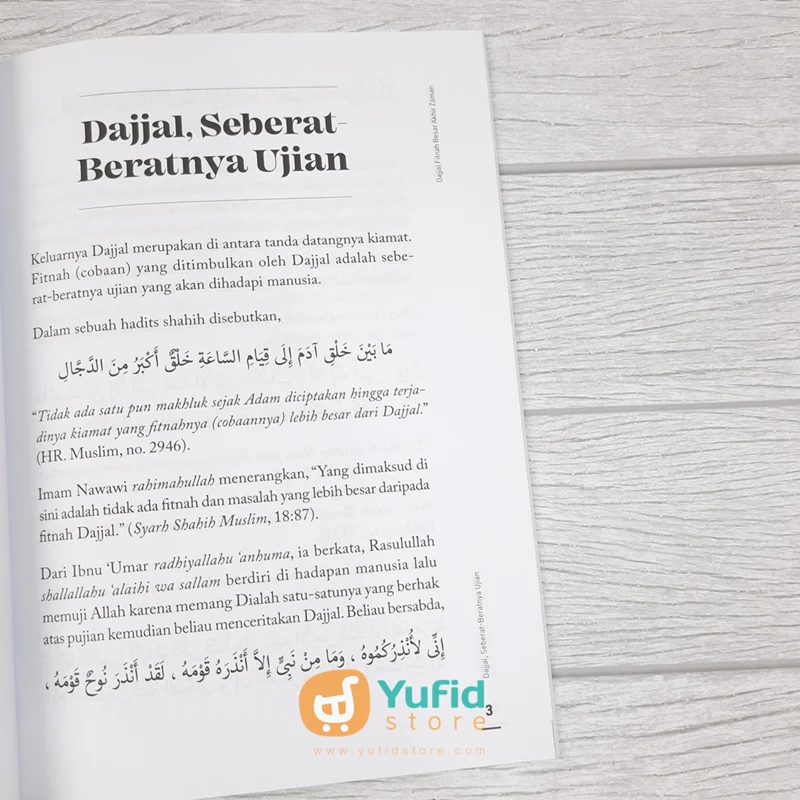 Dajjal Fitnah Besar Akhir Zaman
Dajjal, Seberat-
Beratnya Ujian
Keluarnya Dajjal merupakan di antara tanda datangnya kiamat.
Fitnah (cobaan) yang ditimbulkan oleh Dajjal adalah sebe-
rat-beratnya ujian yang akan dihadapi manusia.
Dalam sebuah hadits shahih disebutkan,
مَا بَيْنَ خَلْقِ آدَمَ إِلَى قِيَامِ السَّاعَةِ خَلْقٌ أَكْبَرُ مِنَ الدَّجَّالِ
“Tidak ada satu pun makhluk sejak Adam diciptakan hingga terja-
dinya kiamat yang fitnahnya (cobaannya) lebih besar dari Dajjal.”
(HR. Muslim, no. 2946).
Imam Nawawi rahimahullah menerangkan, “Yang dimaksud di
sini adalah tidak ada fitnah dan masalah yang lebih besar daripada
fitnah Dajjal.” (Syarh Shahih Muslim, 18:87).
Dari Ibnu ‘Umar radhiyallahu ‘anhuma, ia berkata, Rasulullah
shallallahu ‘alaihi wa sallam berdiri di hadapan manusia lalu
memuji Allah karena memang Dialah satu-satunya yang berhak
atas pujian kemudian beliau menceritakan Dajjal. Beliau bersabda,
إِنِّى لأُنْذِرُكُمُوهُ ، وَمَا مِنْ نَبِىٍّ إِلاَّ أَنْذَرَهُ قَوْمَهُ ، لَقَدْ أَنْذَرَ نُوحٌ قَوْمَهُ ،
Dajjal, Seberat-Beratnya Ujian
3
Yufid
store
www.yufidstore.com